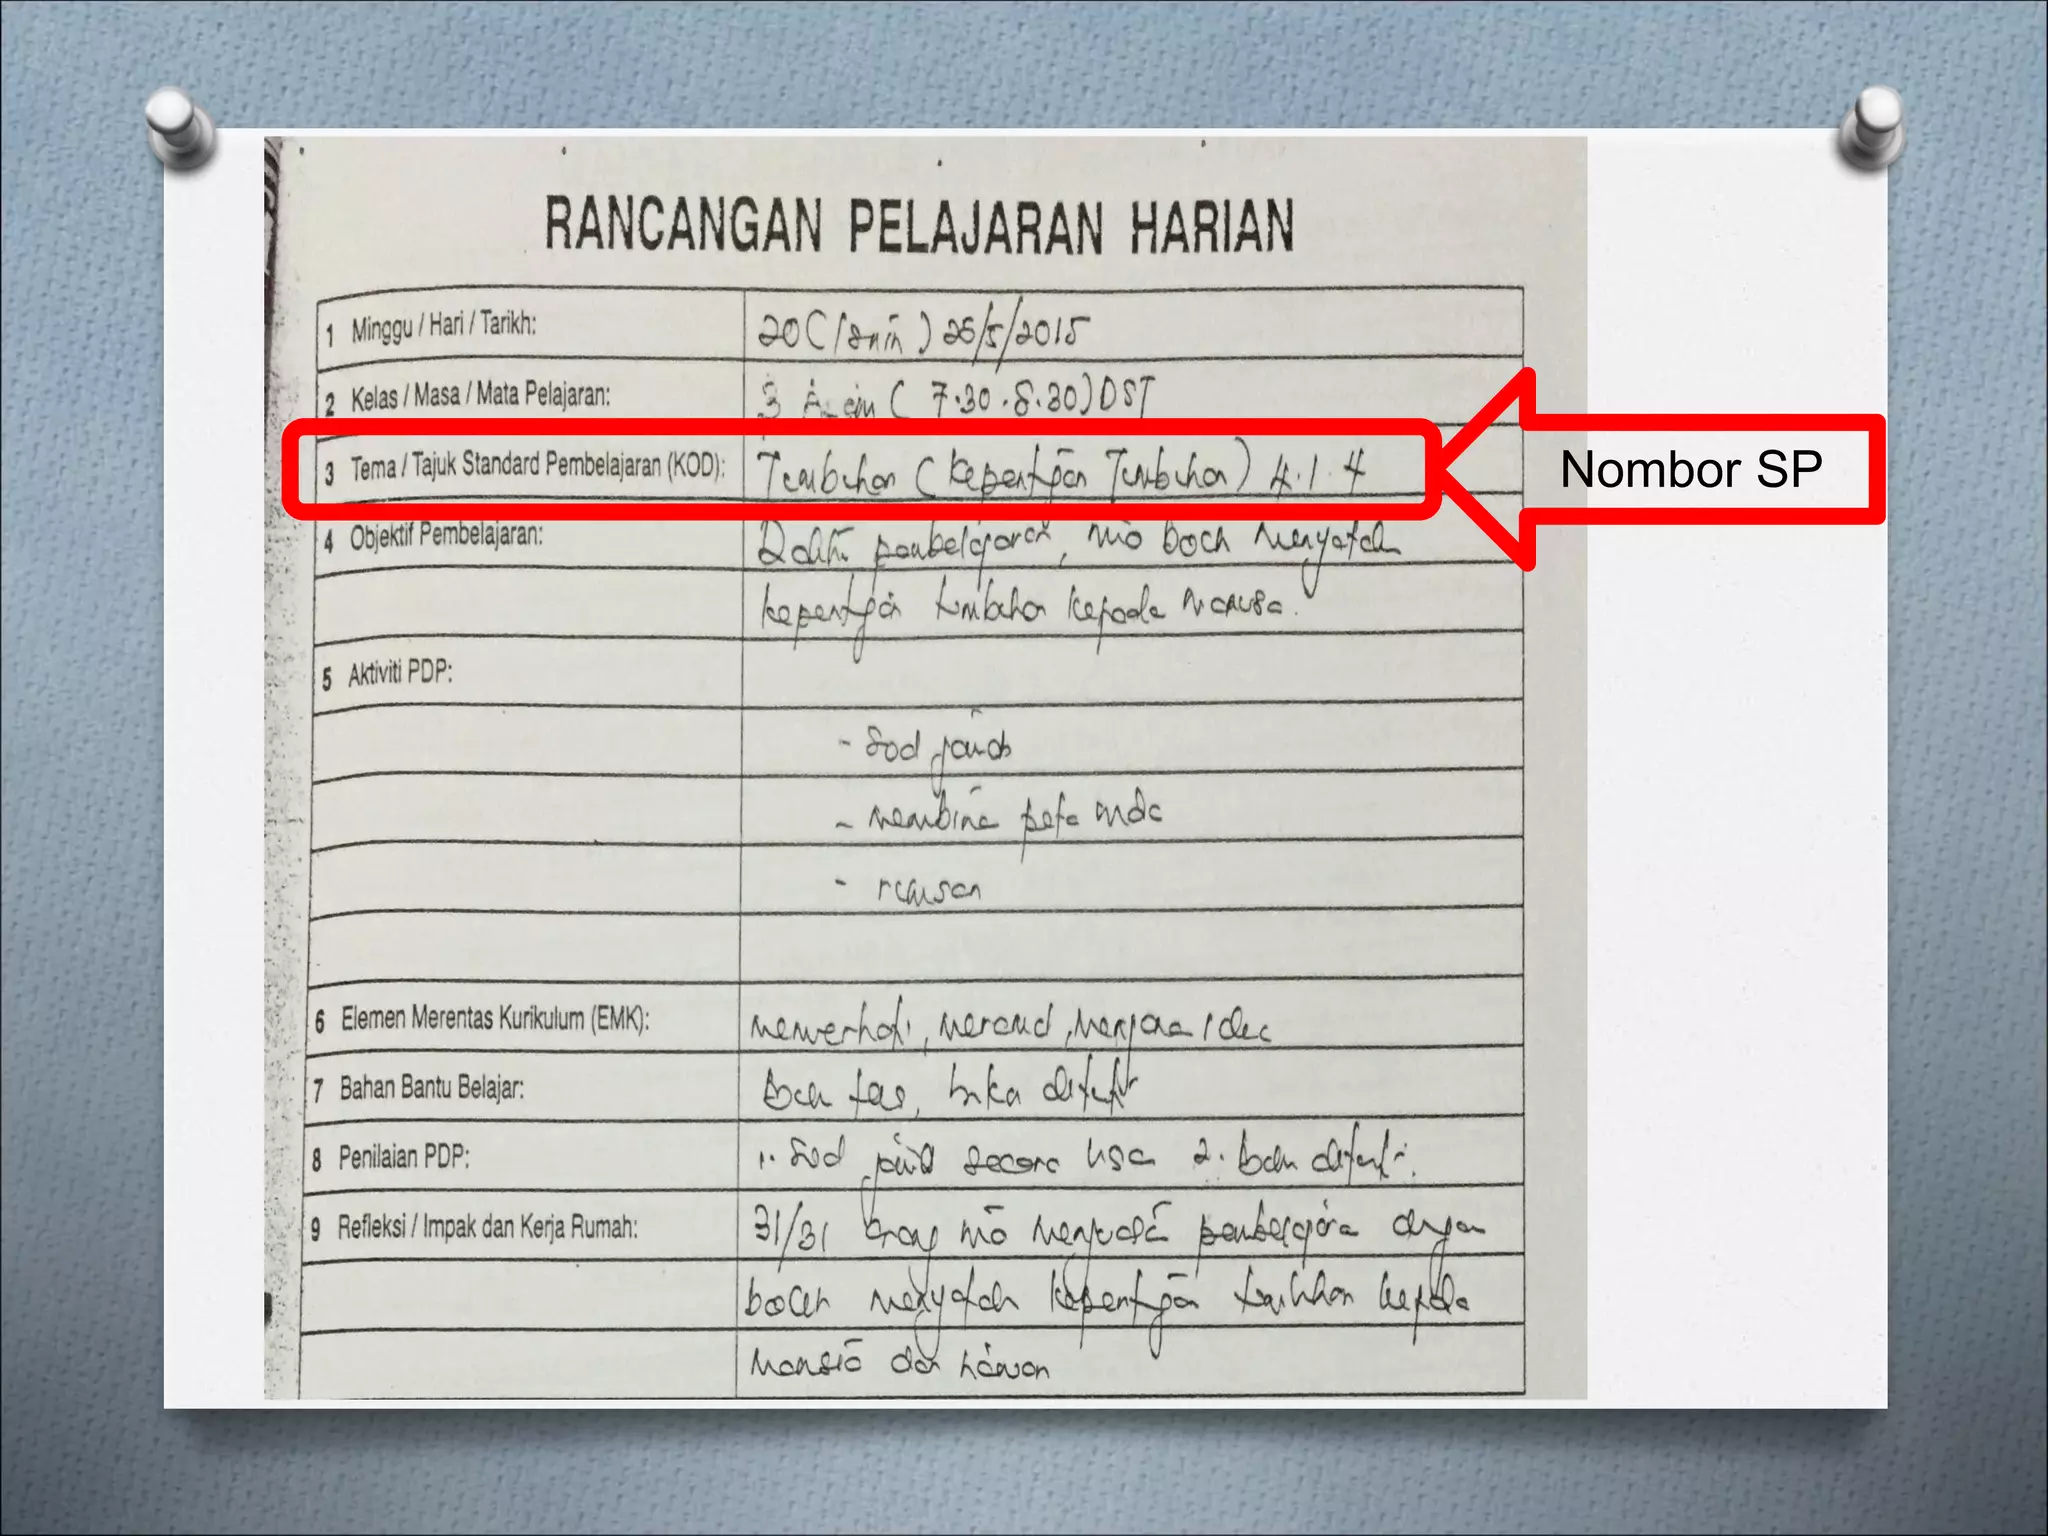 RANCANGAN PELAJARAN HARIAN
1 Minggu / Hari / Tarikh: 20 (Isnin) 25/5/2015
2 Kelas / Masa / Mata Pelajaran: 3 (7.30-8.30) DST
3 Tema / Tajuk Standard Pembelajaran (KOD): Tumbuhan (Kepentgan Tumbuhan) 4.1.4
Nombor SP
4 Objektif Pembelajaran: pembelajaran, boleh menyatakan
kepentgan tumbuhan kepada manusia.
5 Aktiviti PDP:
- Soal jawab
- membina peta minda
- rumusan
6 Elemen Merentas Kurikulum (EMK): memerhati, menjana idea
7 Bahan Bantu Belajar: Buku teks, buka aktiviti
8 Penilaian PDP: 1. Soal jawab secara lisan 2. buku aktiviti.
9 Refleksi / Impak dan Kerja Rumah: 31/31 orang pembelajaran dengan
boleh menyatakan kepentgan tumbuhan kepada
manusia dan haiwan